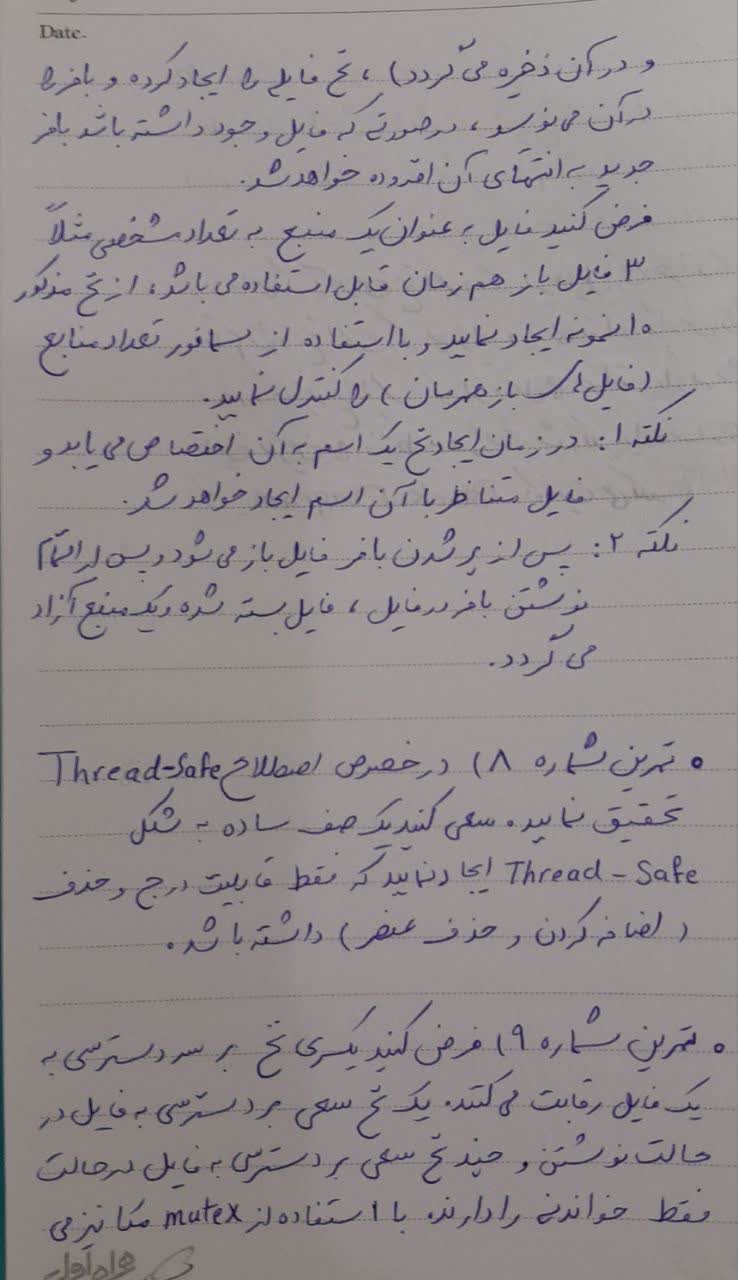 Date-
و در آن ذخیره می گردد) ، نخ فایلی را ایجاد کرده و بافر را
در آن می نویسد ، در صورتی که فایل وجود داشته باشد بافر
جدید به انتهای آن افزوده خواهد شد.
فرض کنید فایل به عنوان یک منبع به تعداد مشخصی مثلاً
۳ فایل باز هم زمان قابل استفاده می باشد ، از نخ مذکور
۱۰ نمونه ایجاد نمایید و با استفاده از سمافور تعداد منابع
(فایل های باز همزمان) را کنترل نمایید.
نکته ۱: در زمان ایجاد نخ یک اسم به آن اختصاص می یابد و
فایل متناظر با آن اسم ایجاد خواهد شد.
نکته ۲: پس از پر شدن بافر فایل باز می شود و پس از اتمام
نوشتن بافر در فایل ، فایل بسته شده و یک منبع آزاد
می گردد.
• تمرین شماره ۸) در خصوص اصطلاح Thread-Safe
تحقیق نمایید. سعی کنید یک صف ساده به شکل
Thread-Safe ایجاد نمایید که فقط قابلیت درج و حذف
(اضافه کردن و حذف عنصر) داشته باشد.
• تمرین شماره ۹) فرض کنید یکسری نخ بر سر دسترسی به
یک فایل رقابت می کنند. یک نخ سعی بر دسترسی به فایل در
حالت نوشتن و چند نخ سعی بر دسترسی به فایل در حالت
فقط خواندنی را دارند. با استفاده از mutex مکانیزمی